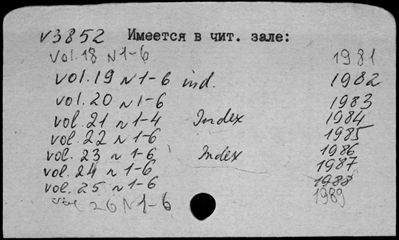 v3852 Имеется в чит. зале:
vol. 18 N 1-6 1981
vol. 19 N 1-6 ind. 1982
vol. 20 N 1-6 1983
vol. 21 N 1-4 Index 1984
vol. 22 N 1-6 1985
vol. 23 N 1-6 Index 1986
vol. 24 N 1-6 1987
vol. 25 N 1-6 1988
vol. 26 N 1-6 1989